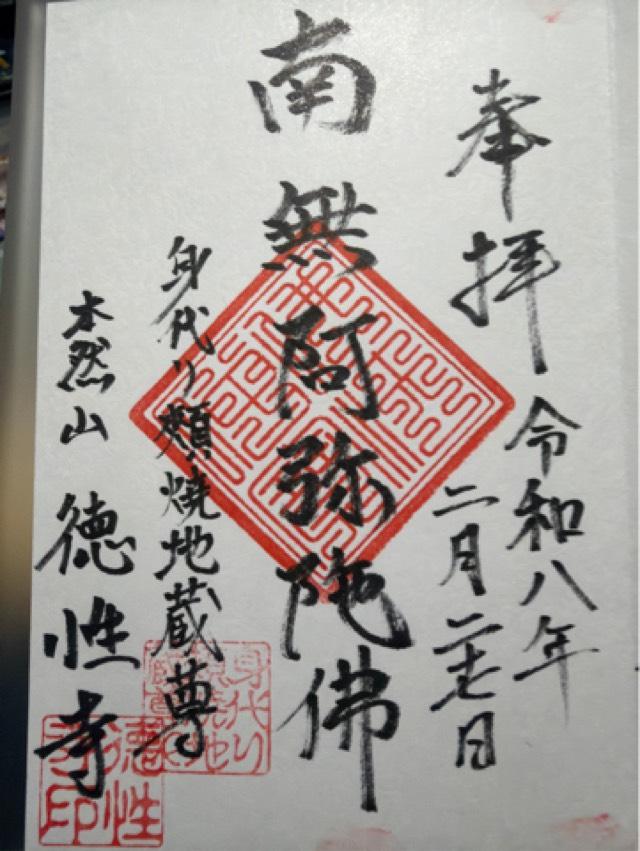 奉拝
令和八年
二月二十七日
南無阿弥陀佛
身代り頬焼地蔵尊
本然山 徳性寺
身代り
頬焼地
蔵尊
徳性
寺印